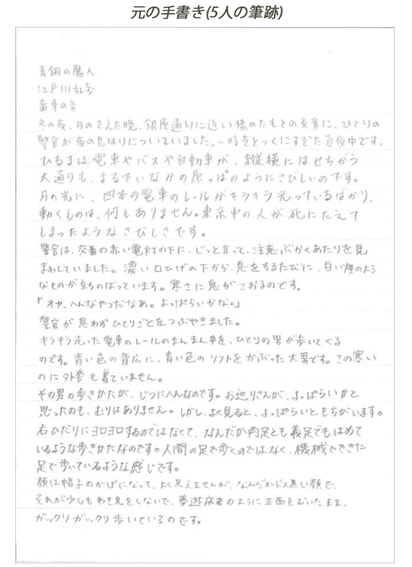 元の手書き(5人の筆跡)
青銅の魔人
江戸川乱歩
歯車の音
冬の夜、月のさえた晩、銀座通りに近い橋のたもとの交番に、ひとりの
警官が夜の見はりについていました。一時をとっくにすぎた真夜中です。
ひるまは電車やバスや自動車が、縦横にはせちがう
大通りも、まるでいなかの原っぱのようにさびしいのです。
月の光に、四本の電車のレールがキラキラ光っているばかり、
動くものは、何もありません。東京中の人が死にたえて
しまったようなさびしさです。
警官は、交番の赤い電灯の下に、じっと立って、注意ぶかくあたりを見
まわしていました。濃い口ひげの下から、息をするたびに、白い煙のよう
なものが立ちのぼっています。寒さに息がこおるのです。
「オヤ、へんなやつだなあ。よっぱらいかな。」
警官が思わずひとりごとをつぶやきました。
キラキラ光った電車のレールのまんまん中を、ひとりの男が歩いてくる
のです。青い色の背広に、青い色のソフトをかぶった大男です。この寒い
のに外套も着ていません。
その男の歩きかたが、じつにへんなのです。お巡りさんが、よっぱらいかと
思ったのも、むりはありません。しかし、よく見ると、よっぱらいともちがいます。
右ひだりにヨロヨロするのではなくて、なんだか両足とも義足でもはめて
いるような歩きかたなのです。人間の足で歩くのではなく、機械でできた
足で歩いているような感じです。
顔は帽子のかげになって、よく見えませんが、なんだかどす黒い顔で、
それが少しもわき見をしないで、夢遊病者のように正面をむいたまま、
ガックリガックリ歩いているのです。